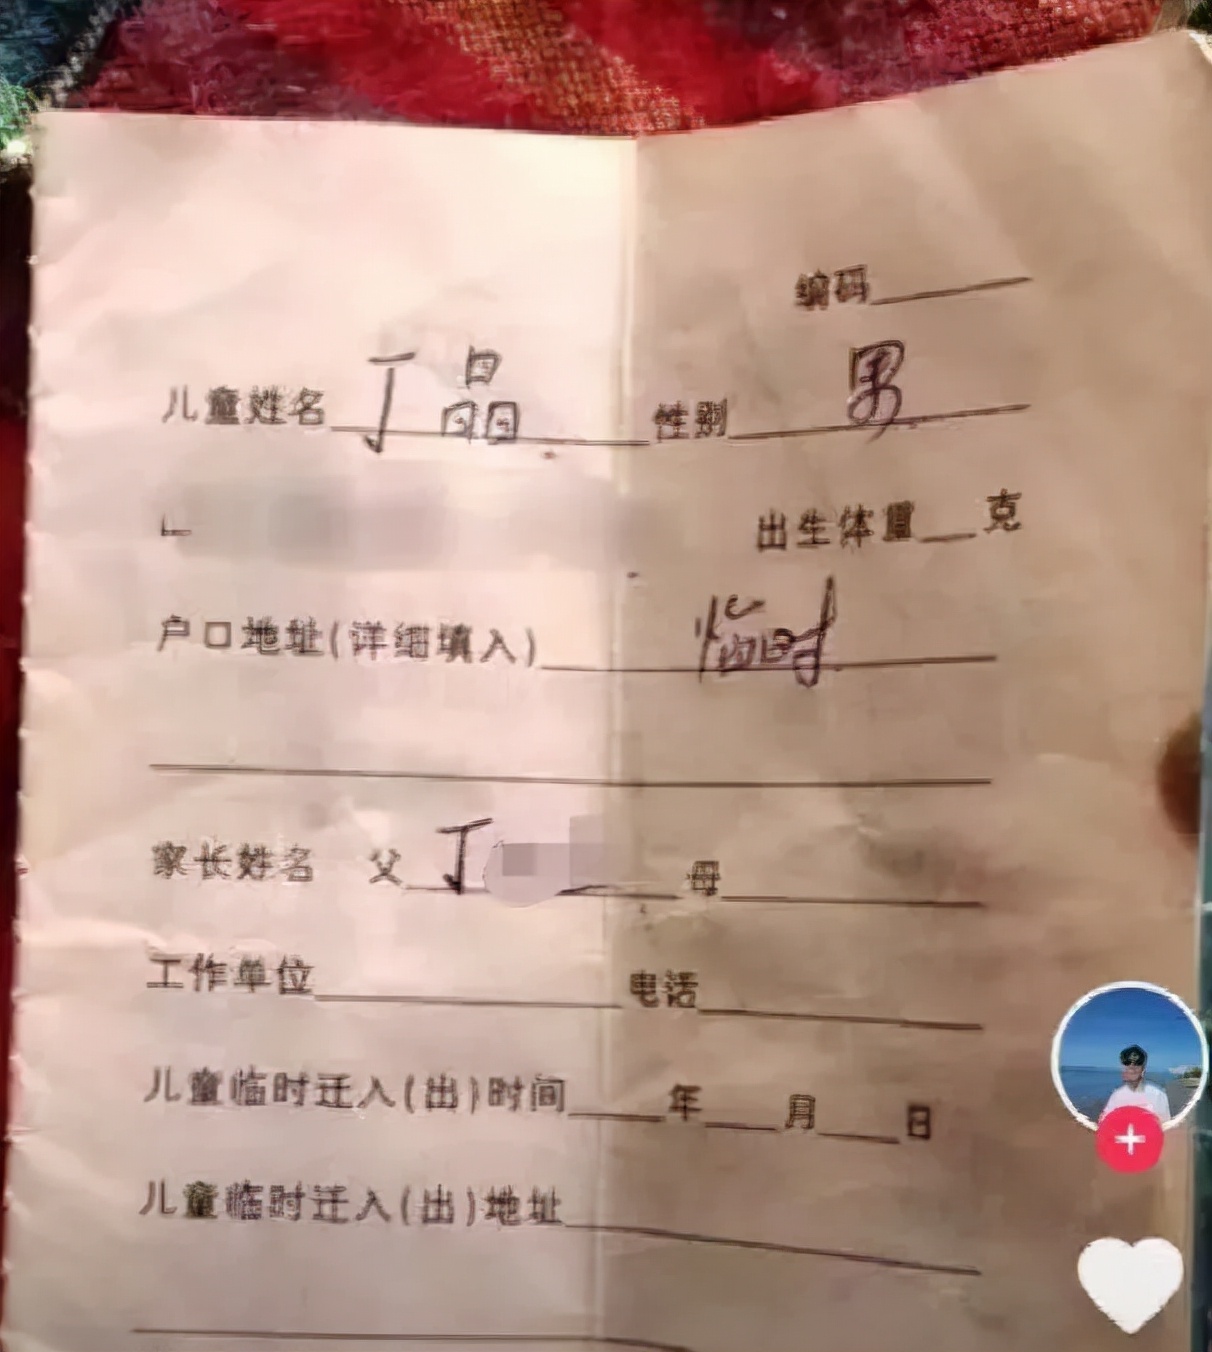 编码
儿童姓名 丁晶 性别 男
出生体重 克
户口地址(详细填入) 临时
家长姓名 父 丁 母
工作单位 电话
儿童临时迁入(出)时间 年 月 日
儿童临时迁入(出)地址